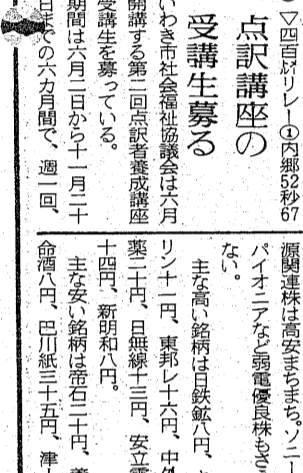 ▽四百㍍リレー①内郷52秒67
点訳講座の
受講生募る
いわき市社会福祉協議会は六月
開講する第二回点訳者養成講座
受講生を募っている。
期間は六月二日から十一月二十
日までの六カ月間で、週一回、
源関連株は高安まちまち。ソニー
パイオニアなど弱電優良株もさ
ない。
主な高い銘柄は日鉄鉱八円、
リン十一円、東邦レ十六円、中外
薬二十円、日無線十三円、安立電
十四円、新明和八円。
主な安い銘柄は帝石二十円、
命酒八円、巴川紙三十五円、津上